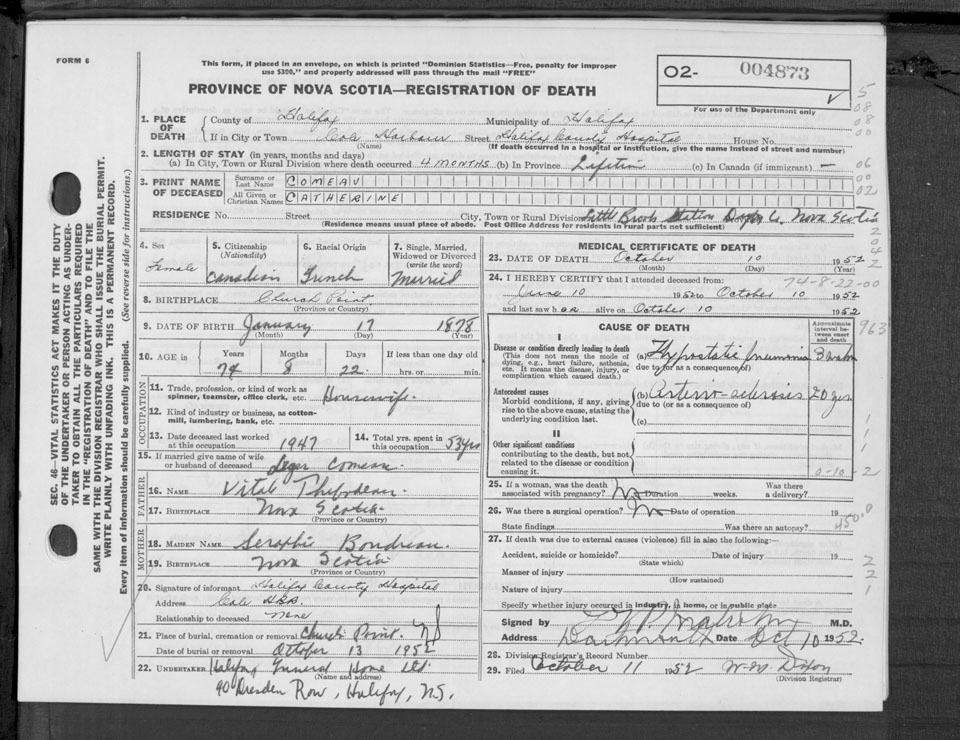 FORM 6
This form, if placed in an envelope, on which is printed "Dominion Statistics—Free, penalty for improper
use $300," and properly addressed will pass through the mail "FREE"
O2- 004873
PROVINCE OF NOVA SCOTIA—REGISTRATION OF DEATH
For use of the Department only
1. PLACE OF DEATH
County of Halifax Municipality of Halifax
If in City or Town Cole Harbour Street Halifax County Hospital House No.
(Name) (If death occurred in a hospital or institution, give the name instead of street and number)
2. LENGTH OF STAY (in years, months and days)
(a) In City, Town or Rural Division where death occurred 4 MONTHS (b) In Province Lifetime (c) In Canada (if immigrant) —
3. PRINT NAME OF DECEASED
Surname or Last Name COMEAU
All Given or Christian Names CATHERINE
RESIDENCE No. Street City, Town or Rural Division Little Brook Station Digby Co. Nova Scotia
(Residence means usual place of abode. Post Office Address for residents in rural parts not sufficient)
4. Sex Female
5. Citizenship (Nationality) Canadian
6. Racial Origin French
7. Single, Married, Widowed or Divorced (write the word) Married
8. BIRTHPLACE Church Point
(Province or Country)
9. DATE OF BIRTH January 17 1878
(Month) (Day) (Year)
10. AGE in Years Months Days If less than one day old
74 8 22 hrs. or min.
OCCUPATION
11. Trade, profession, or kind of work as spinner, teamster, office clerk, etc. Housewife.
12. Kind of industry or business, as cotton-mill, lumbering, bank, etc.
13. Date deceased last worked at this occupation 1947
14. Total yrs. spent in this occupation 53 yrs
15. If married give name of wife or husband of deceased Leger Comeau.
FATHER
16. NAME Vital
17. BIRTHPLACE Nova Scotia.
(Province or Country)
MOTHER
18. MAIDEN NAME Seraphie Boudreau.
19. BIRTHPLACE Nova Scotia
(Province or Country)
20. Signature of informant Halifax County Hospital
Address Cole HBR.
Relationship to deceased none
21. Place of burial, cremation or removal Church Point. NS
Date of burial or removal October 13 1952
22. UNDERTAKER Halifax Funeral Home Ltd.
(Name and address)
90 Dresden Row, Halifax, N.S.
MEDICAL CERTIFICATE OF DEATH
23. DATE OF DEATH October 10 1952
(Month) (Day) (Year)
74-8-22-00
24. I HEREBY CERTIFY that I attended deceased from:
June 10 1952 to October 10 1952
and last saw her alive on October 10 1952
CAUSE OF DEATH
Approximate interval between onset and death
I
Disease or condition directly leading to death
(This does not mean the mode of dying, e.g., heart failure, asthenia, etc. It means the disease, injury, or complication which caused death.)
(a) Hypostatic pneumonia
due to (or as a consequence of)
Antecedent causes
Morbid conditions, if any, giving rise to the above cause, stating the underlying condition last.
(b) Arterio-sclerosis 20 yrs
due to (or as a consequence of)
(c)
II
Other significant conditions
contributing to the death, but not related to the disease or condition causing it.
0-10-2
25. If a woman, was the death associated with pregnancy? No Duration weeks. Was there a delivery?
26. Was there a surgical operation? No Date of operation 19
State findings Was there an autopsy?
450.0
27. If death was due to external causes (violence) fill in also the following:—
Accident, suicide or homicide? Date of injury 19
(State which)
Manner of injury
(How sustained)
Nature of injury
Specify whether injury occurred in industry, in home, or in public place
Signed by M.D.
Address Dartmouth Date Oct 10 1952.
28. Division Registrar's Record Number
29. Filed October 11 1952 Dixon
(Division Registrar)
SEC. 46—VITAL STATISTICS ACT MAKES IT THE DUTY
OF THE UNDERTAKER OR PERSON ACTING AS UNDER-
TAKER TO OBTAIN ALL THE PARTICULARS REQUIRED
IN THE "REGISTRATION OF DEATH" AND TO FILE THE
SAME WITH THE DIVISION REGISTRAR WHO SHALL ISSUE THE BURIAL PERMIT.
WRITE PLAINLY WITH UNFADING INK. THIS IS A PERMANENT RECORD.
Every item of information should be carefully supplied. (See reverse side for instructions.)
5
08
08
00
06
00
02
2
0
4
2
963
1
1
1
2
2
1